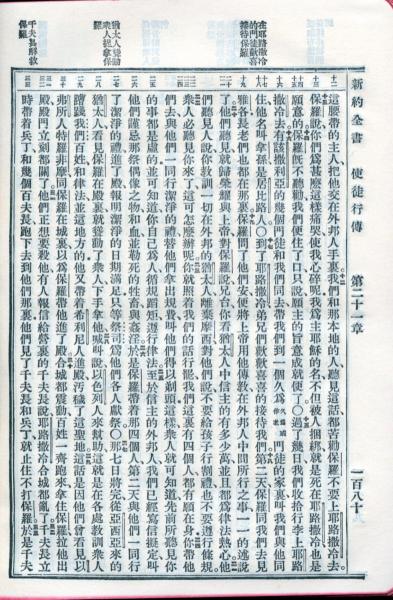 新約全書　使徒行傳　第二十一章　一百八十
在耶路撒冷
的門徒歡喜
接待保羅
猶太人聳動
衆人捉拿保
羅
千夫長解救
保羅
這腰帶的主人把他交在外邦人手裏我們和那本地的人聽見這話都苦勸保羅不要上耶路撒冷去
保羅說你們爲甚麼這樣痛哭使我心碎呢我爲主耶穌的名不但被人捆綁就是死在耶路撒冷也是
願意的保羅旣不聽勸我們便住了口只說願主的旨意成就便了○過了幾日我們收拾行李上耶路
撒冷去有該撒利亞的幾個門徒和我們同去帶我們到一個久爲門徒的家裏叫我們與他同
住他名叫拿孫是居比路人○到了耶路撒冷弟兄們歡歡喜喜的接待我們第二天保羅同我們去見
雅各長老們也都在那裏保羅問了他們安便將上帝用他傳敎在外邦人中間所行之事一一的述說
了他們聽見就歸榮耀與上帝對保羅說兄台你看猶太人中信主的有多少萬並且都爲律法熱心他
們聽見人說你敎訓一切在外邦的猶太人離棄摩西對他們說不要給孩子行割禮也不要遵行條規
衆人必聽見你來了這可怎麼辦呢你就照着我們的話行罷我們這裏有四個人都有願在身你帶他
們去與他們一同行潔淨的禮替他們拿出規費叫他們得以剃頭這樣衆人就可知道先前所聽見你
的事都是虛的並可知道你自己爲人循規蹈矩遵行律法至於信主的外邦人我們已經寫信擬定叫
他們謹忌那祭偶像之物和血並勒死的牲畜與姦淫於是保羅帶着那四個人第二天與他們一同行
了潔淨的禮進了殿報明潔淨的日期滿足只等祭司爲他們各人獻祭○那七日將完從亞西亞來的
猶太人看見保羅在殿裏就聳動了衆人下手拿他喊叫說以色列人來幫助這就是在各處敎訓衆人
蹧踐我們百姓和律法並這地方的他又帶着希利尼人進殿污穢了這聖地這話是因他們曾看見以
弗所人特羅非摩同保羅在城裏以爲保羅帶他進了殿合城都震動百姓一齊跑來拿住保羅拉他出
殿殿門立刻都關了他們正想要殺他有人報信給營裏的千夫長說耶路撒冷合城都亂了千夫長立
時帶着兵丁和幾個百夫長跑下去到他們那裏他們見了千夫長和兵丁就止住不打保羅於是千夫